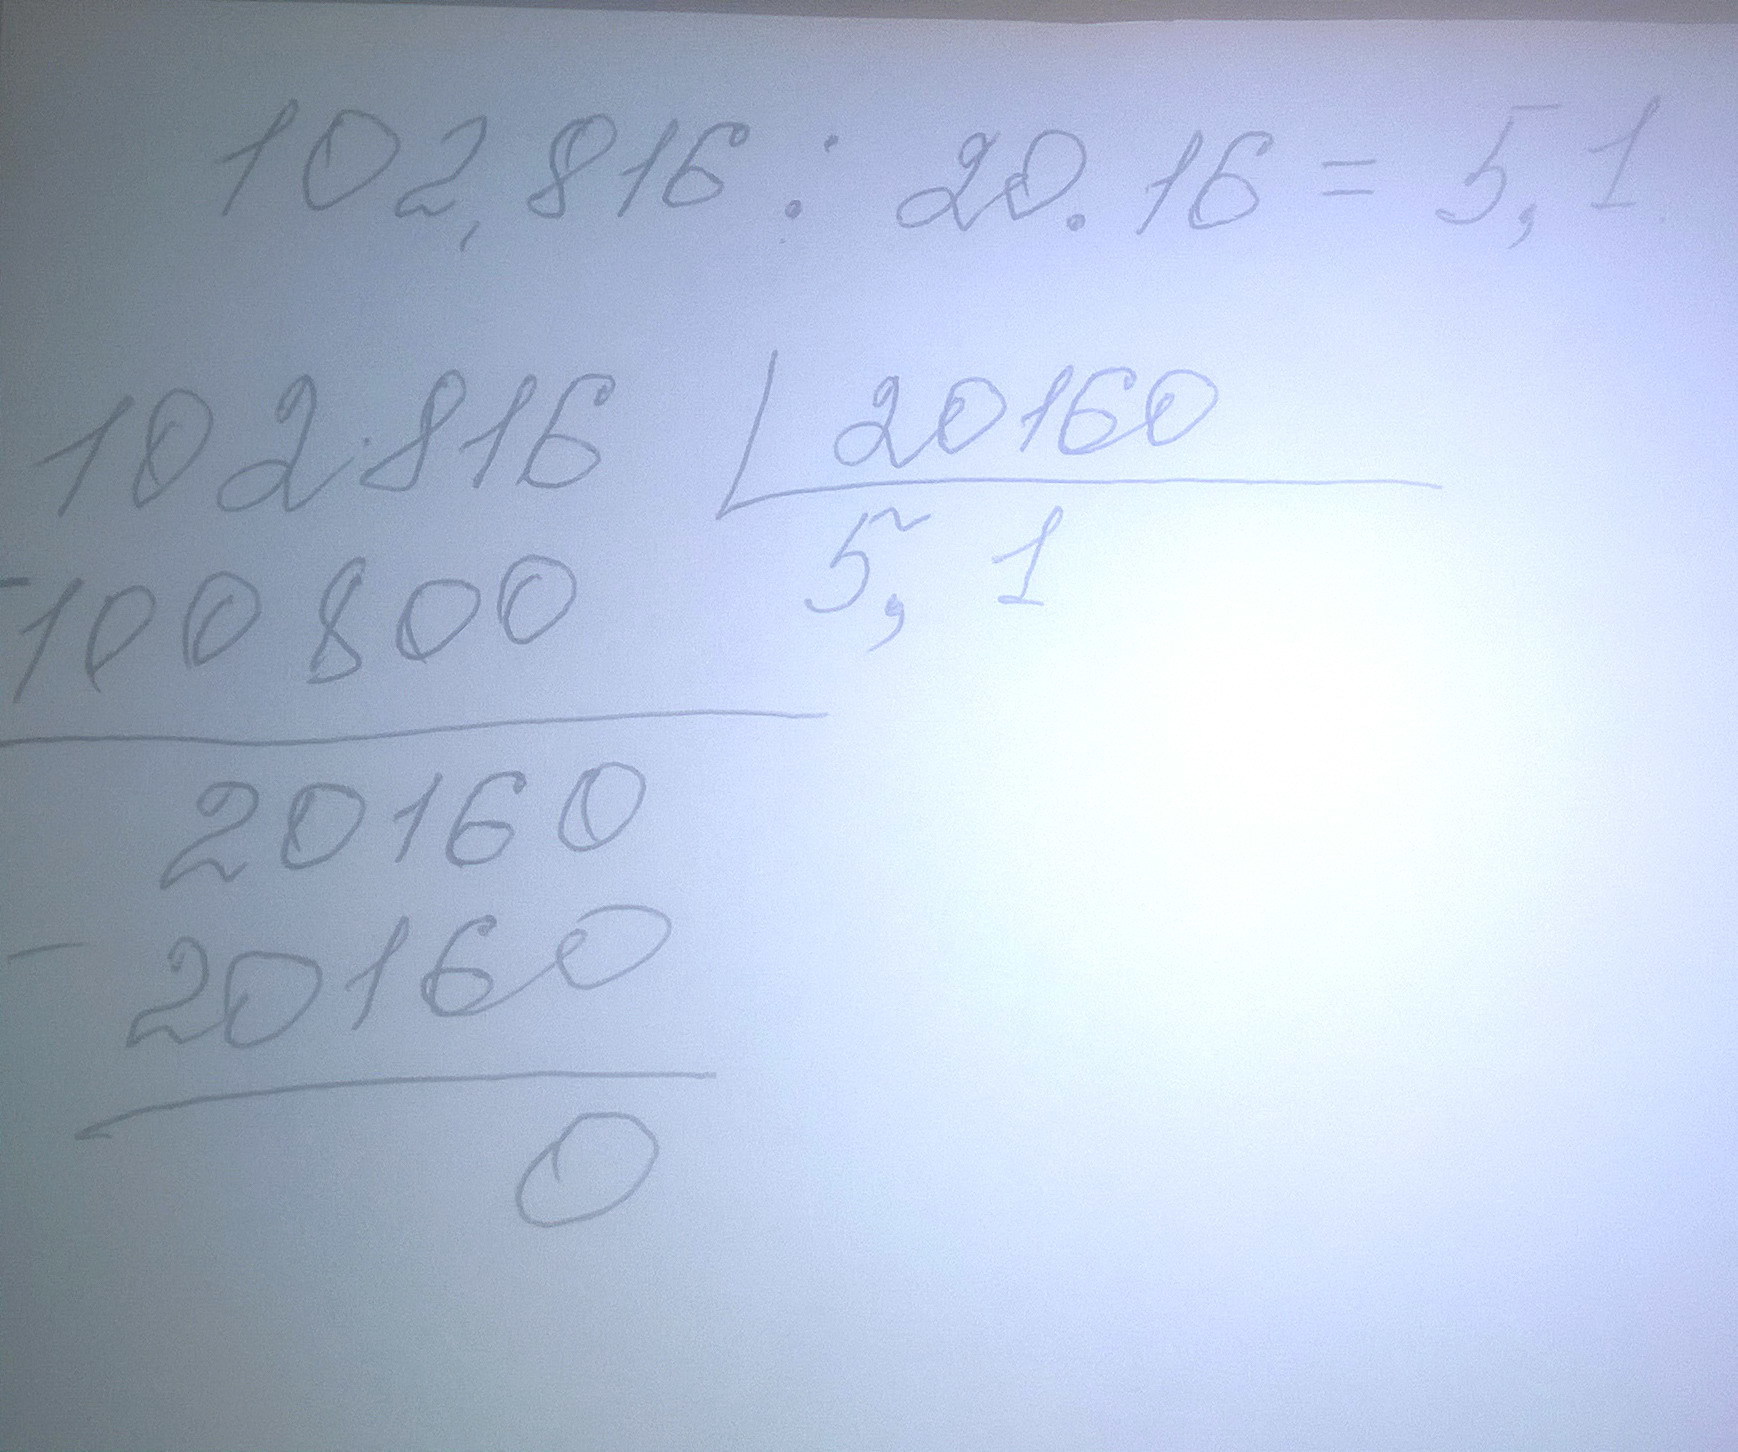 102,816 : 20.16 = 5,1
102816 20160
-100800 5,1
20160
- 20160
0